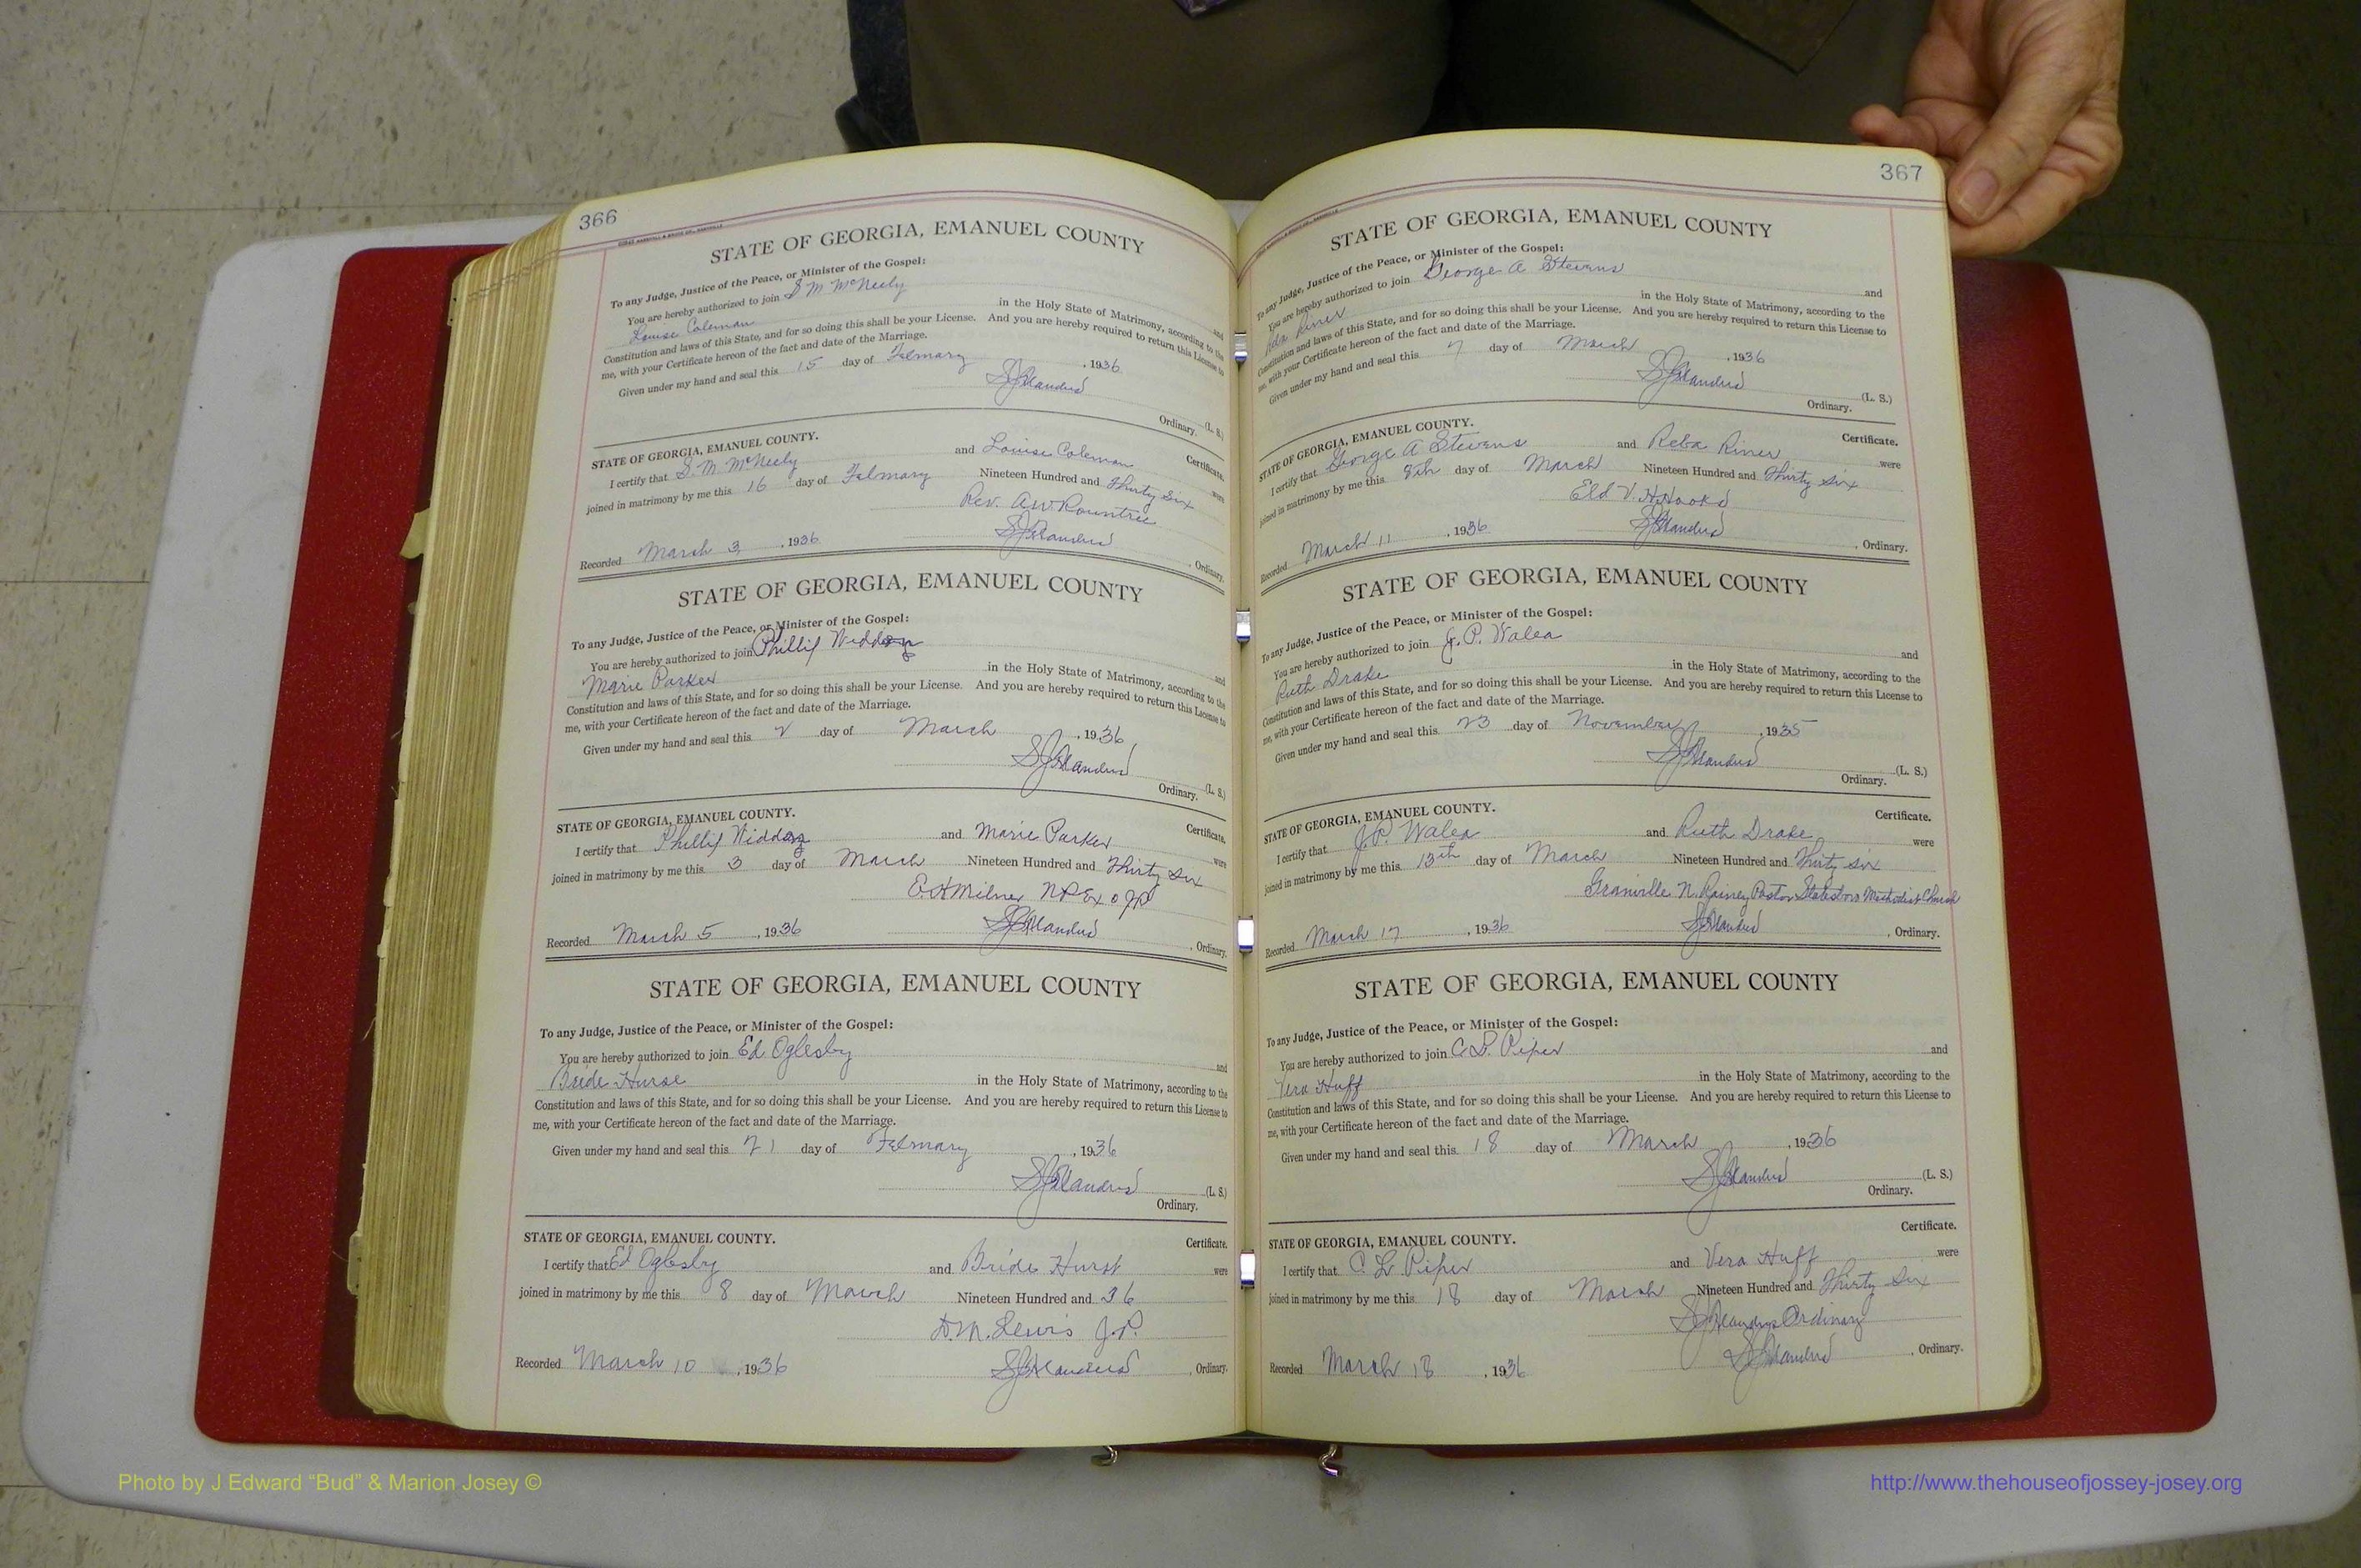 366
STATE OF GEORGIA, EMANUEL COUNTY
To any Judge, Justice of the Peace, or Minister of the Gospel:
You are hereby authorized to join S M McNeely and
Louise Coleman in the Holy State of Matrimony, according to the
Constitution and laws of this State, and for so doing this shall be your License. And you are hereby required to return this License to
me, with your Certificate hereon of the fact and date of the Marriage.
Given under my hand and seal this 15 day of February , 1936
(L. S.)
Ordinary.
STATE OF GEORGIA, EMANUEL COUNTY. Certificate.
I certify that S. M. McNeely and Louise Coleman were
joined in matrimony by me this 16 day of February Nineteen Hundred and Thirty Six
Rev. A W Rountree
Recorded March 3 , 1936 , Ordinary.
STATE OF GEORGIA, EMANUEL COUNTY
To any Judge, Justice of the Peace, or Minister of the Gospel:
You are hereby authorized to join Phillip and
Marie Parker in the Holy State of Matrimony, according to the
Constitution and laws of this State, and for so doing this shall be your License. And you are hereby required to return this License to
me, with your Certificate hereon of the fact and date of the Marriage.
Given under my hand and seal this 2 day of March , 1936
(L. S.)
Ordinary.
STATE OF GEORGIA, EMANUEL COUNTY. Certificate.
I certify that Phillip and Marie Parker were
joined in matrimony by me this 3 day of March Nineteen Hundred and Thirty Six
E. H Milner N P Ex o J P
Recorded March 5 , 1936 , Ordinary.
STATE OF GEORGIA, EMANUEL COUNTY
To any Judge, Justice of the Peace, or Minister of the Gospel:
You are hereby authorized to join Ed Oglesby and
Bride Hurst in the Holy State of Matrimony, according to the
Constitution and laws of this State, and for so doing this shall be your License. And you are hereby required to return this License to
me, with your Certificate hereon of the fact and date of the Marriage.
Given under my hand and seal this 21 day of February , 1936
(L. S.)
Ordinary.
STATE OF GEORGIA, EMANUEL COUNTY. Certificate.
I certify that Ed Oglesby and Bride Hurst were
joined in matrimony by me this 8 day of March Nineteen Hundred and 36
D. M. Lewis J. P.
Recorded March 10 , 1936 , Ordinary.
367
STATE OF GEORGIA, EMANUEL COUNTY
To any Judge, Justice of the Peace, or Minister of the Gospel:
You are hereby authorized to join George A Stevens and
Reba Riner in the Holy State of Matrimony, according to the
Constitution and laws of this State, and for so doing this shall be your License. And you are hereby required to return this License to
me, with your Certificate hereon of the fact and date of the Marriage.
Given under my hand and seal this 7 day of March , 1936
(L. S.)
Ordinary.
STATE OF GEORGIA, EMANUEL COUNTY. Certificate.
I certify that George A Stevens and Reba Riner were
joined in matrimony by me this 8th day of March Nineteen Hundred and Thirty Six
Eld V. H Hooks
Recorded March 11 , 1936 , Ordinary.
STATE OF GEORGIA, EMANUEL COUNTY
To any Judge, Justice of the Peace, or Minister of the Gospel:
You are hereby authorized to join J. P. Walea and
Ruth Drake in the Holy State of Matrimony, according to the
Constitution and laws of this State, and for so doing this shall be your License. And you are hereby required to return this License to
me, with your Certificate hereon of the fact and date of the Marriage.
Given under my hand and seal this 23 day of November , 1935
(L. S.)
Ordinary.
STATE OF GEORGIA, EMANUEL COUNTY. Certificate.
I certify that J. P. Walea and Ruth Drake were
joined in matrimony by me this 13th day of March Nineteen Hundred and Thirty six
Granville N. Rainey Pastor Statesboro Methodist Church
Recorded March 17 , 1936 , Ordinary.
STATE OF GEORGIA, EMANUEL COUNTY
To any Judge, Justice of the Peace, or Minister of the Gospel:
You are hereby authorized to join C L Piper and
Vera Huff in the Holy State of Matrimony, according to the
Constitution and laws of this State, and for so doing this shall be your License. And you are hereby required to return this License to
me, with your Certificate hereon of the fact and date of the Marriage.
Given under my hand and seal this 18 day of March , 1936
(L. S.)
Ordinary.
STATE OF GEORGIA, EMANUEL COUNTY. Certificate.
I certify that C. L Piper and Vera Huff were
joined in matrimony by me this 18 day of March Nineteen Hundred and Thirty Six
Ordinary
Recorded March 18 , 1936 , Ordinary.
Photo by J Edward “Bud” & Marion Josey ©
http://www.thehouseofjossey-josey.org